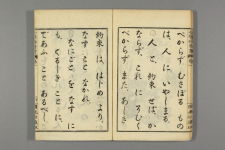 べからず。むさぼる もの
は、人 に、いやしまる。
人 と、約束 せば、か
ならず、これ に そむく
べからず。また、あしき
約束 は、はじめ より、
なす こと なかれ。
なにごと を なす に
も、くるしき こと に
であふ こと あるべし。